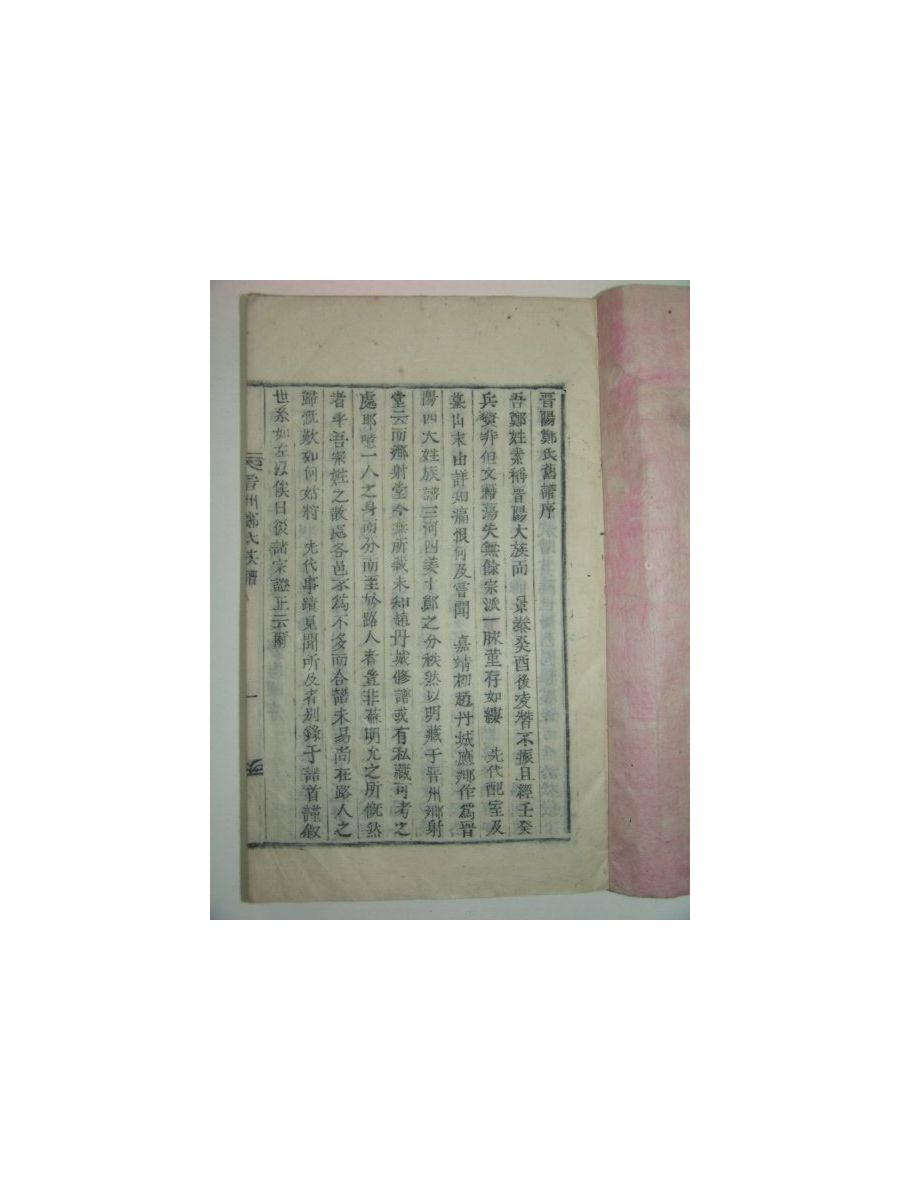 晋陽鄭氏舊譜序
吾鄭姓素稱晋陽大族而 景泰癸酉後凌替不振且經壬癸
兵燹非但文籍蕩失無餘宗派一脉董存如縷 先代配室及
墓山末由詳知痛恨何及曾聞 嘉靖初趙丹城應卿作爲晋
陽四大姓族譜三河四姜十鄭之分秩然以明藏于晋州鄉射
堂云而鄉射堂今無所藏未知趙丹城修譜或有私藏可考之
處耶噫一人之身而分而至於路人者豈非蘇明允之所慨然
者乎吾宗姓之散處各邑不爲不多而合譜未易尚在路人之
歸慨歎如何姑將 先代事蹟見聞所及者别錄于譜首謹叙
世系如左以俟日後諸宗證正云爾
晋州鄭氏族譜 一